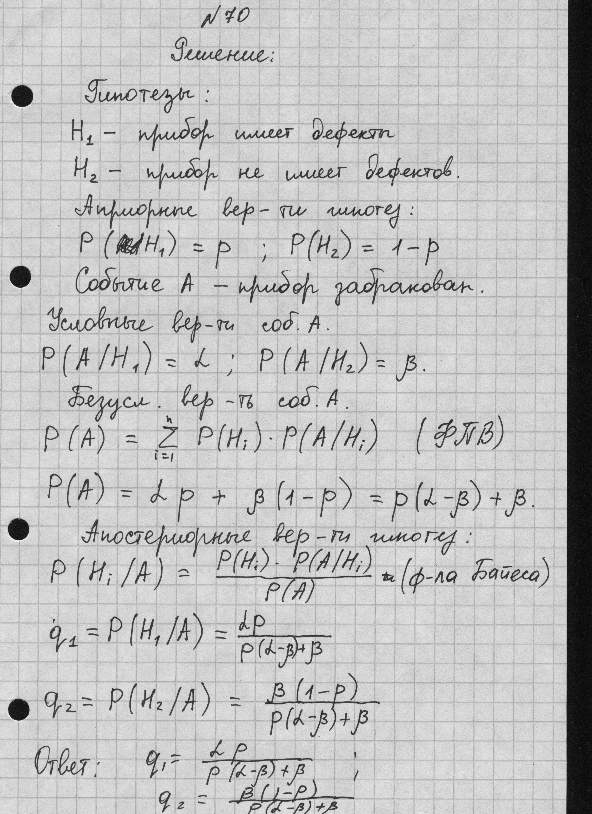 № 70
Решение:
Гипотезы:
H₁ – прибор имеет дефекты
H₂ – прибор не имеет дефектов.
Априорные вер-ти гипотез:
P(H₁) = p ; P(H₂) = 1-p
Событие A – прибор забракован.
Условные вер-ти соб. A.
P(A/H₁) = α ; P(A/H₂) = β.
Безусл. вер-ть соб. A.
P(A) = ∑ⁿᵢ₌₁ P(Hᵢ)·P(A/Hᵢ) (ФПВ)
P(A) = αp + β(1-p) = p(α-β)+β.
Апостериорные вер-ти гипотез:
P(Hᵢ/A) = P(Hᵢ)·P(A/Hᵢ) / P(A) - (ф-ла Байеса)
q₁ = P(H₁/A) = αp / p(α-β)+β
q₂ = P(H₂/A) = β(1-p) / p(α-β)+β
Ответ: q₁ = αp / p(α-β)+β ;
q₂ = β(1-p) / p(α-β)+β